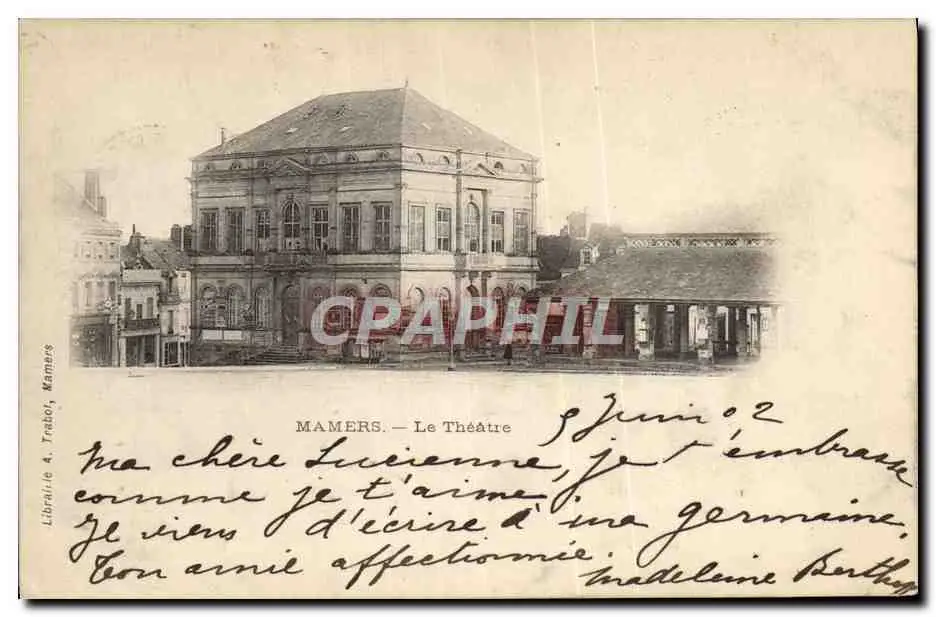 CPARAMA
MAMERS. — Le Théâtre
Librairie A. Trabot, Mamers
5 Juin 02
Ma chère Lucienne, je t'embrasse
comme je t'aime
Je viens d'écrire à ma germaine.
Ton amie affectionnée.
Madeleine